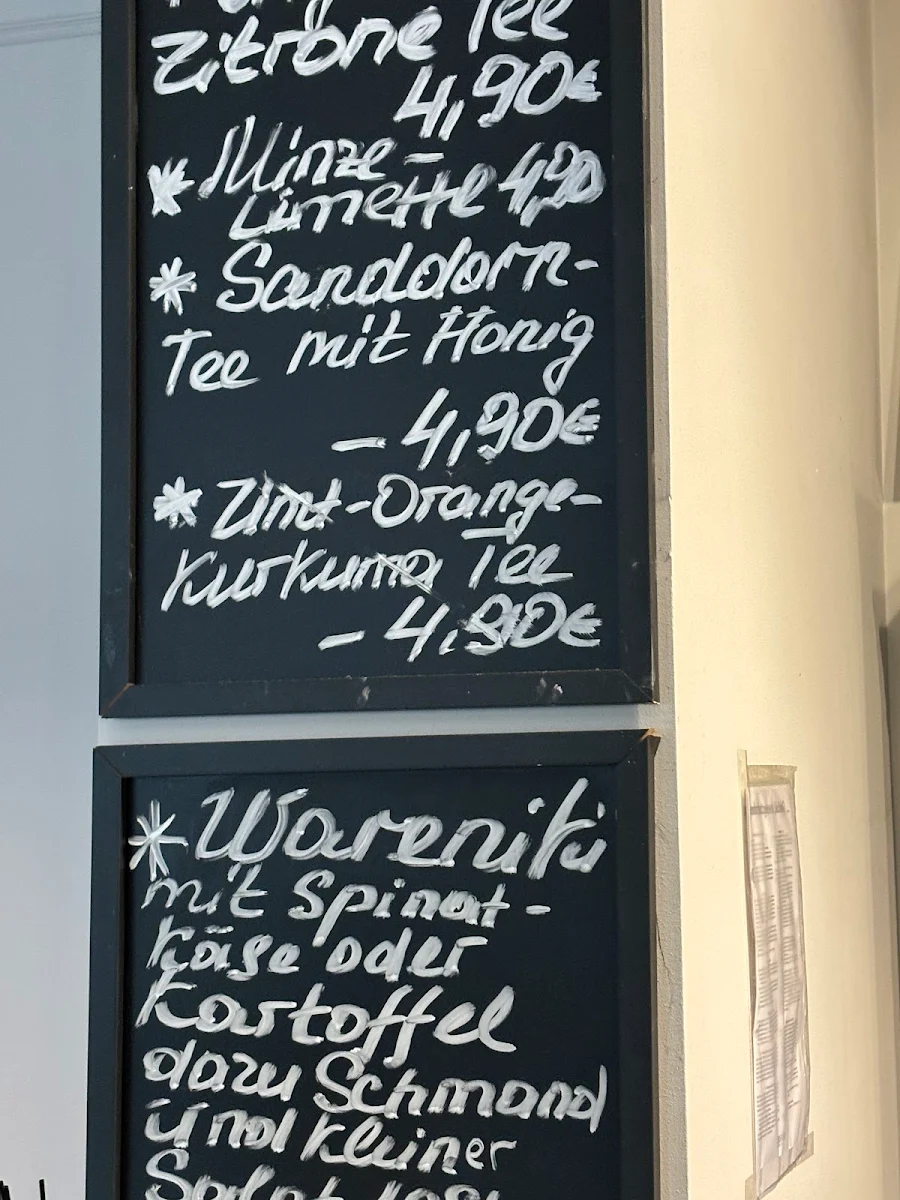 Zitrone Tee
4,90€
* Minze-
Limette 4,90
* Sanddorn-
Tee mit Honig
- 4,90€
* Zimt-Orange-
Kurkuma Tee
- 4,90€
* Wareniki
mit Spinat-
käse oder
Kartoffel
dazu Schmand
und kleiner
Salat